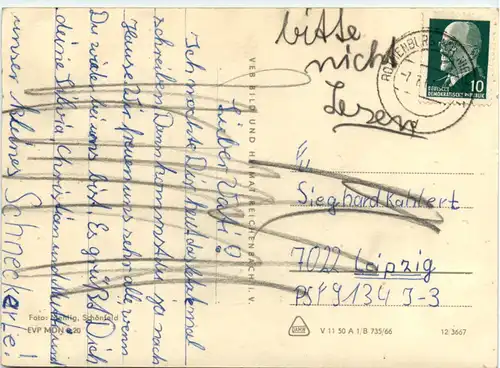 Lieber Vati!
Ich möchte Dir heut doch einmal
schreiben. Dann kommst Du ja nach
Hause. Wir freuen uns sehr alle, wenn
Du wieder bei uns bist. Es grüßt Dich
deine Silvia, Christian und Mutti und
unser kleines Schneckerle!
bitte
nicht
lesen
DEUTSCHE
DEMOKRATISCHE REPUBLIK
10
Sieghard Kahlert
7022 Leipzig
PSF 9134 J-3
VEB BILD UND HEIMAT REICHENBACH I. V.
Foto: Schönfeld
EVP MDN 0,20
V 11 50 A 1/B 735/66
12/3667